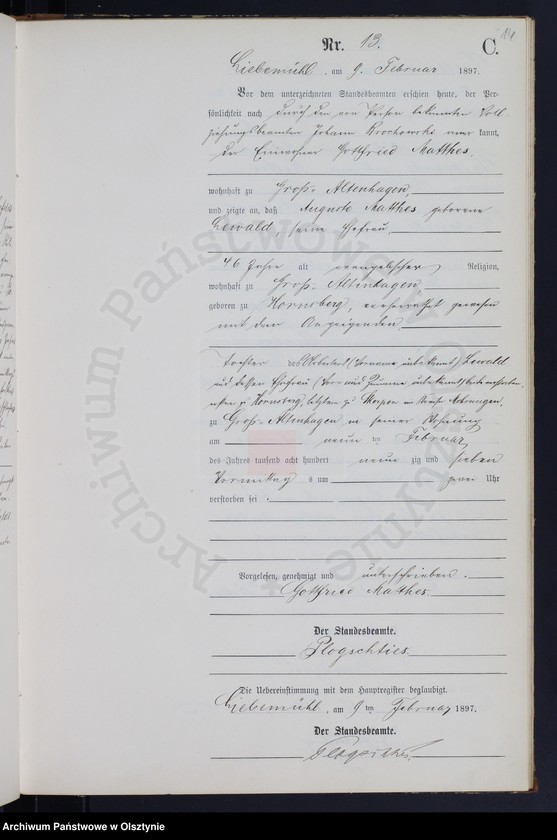 14
Nr. 13. C.
Liebemühl, am 9. Februar 1897.
Vor dem unterzeichneten Standesbeamten erschien heute, der Per-
sönlichkeit nach durch den von Person bekannten Voll
ziehungsbeamten Johann Brochowski aner kannt,
der Einwohner Gottfried Matthes,
wohnhaft zu Groß-Altenhagen,
und zeigte an, daß Auguste Matthes geborene
Lewald, seine Ehefrau,
46 Jahre alt, evangelischer Religion,
wohnhaft zu Groß-Altenhagen,
geboren zu Hornsberg, verheirathet gewesen
mit dem Anzeigenden
Tochter des Arbeiters (Vorname unbekannt) Lewald
und dessen Ehefrau (Vor und Zuname unbekannt) beide verstorben,
zu Hornsberg, letztere zu
zu Groß-Altenhagen in seiner Wohnung
am neun ten Februar
des Jahres tausend acht hundert neun zig und sieben
Vormittag s um zwei Uhr
verstorben sei.
Vorgelesen, genehmigt und unterschrieben.
Gottfried Matthes.
Der Standesbeamte.
Plogschties
Die Uebereinstimmung mit dem Hauptregister beglaubigt.
Liebemühl, am 9 ten Februar 1897.
Der Standesbeamte.
Plogschties
Archiwum Państwowe w Olsztynie
Archiwum Państwowe w Olsztynie